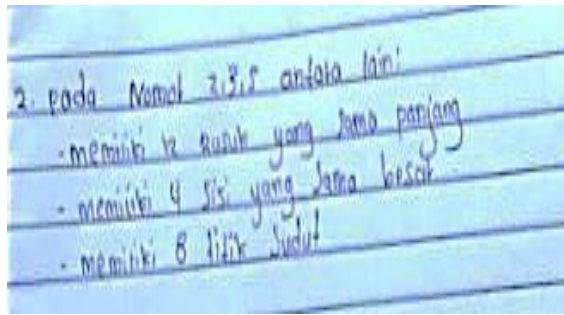 2. Pada Nomor 2,3,5 antara lain:
- memiliki 12 Rusuk yang sama panjang
- memiliki 4 sisi yang sama besar
- memiliki 8 titik sudut